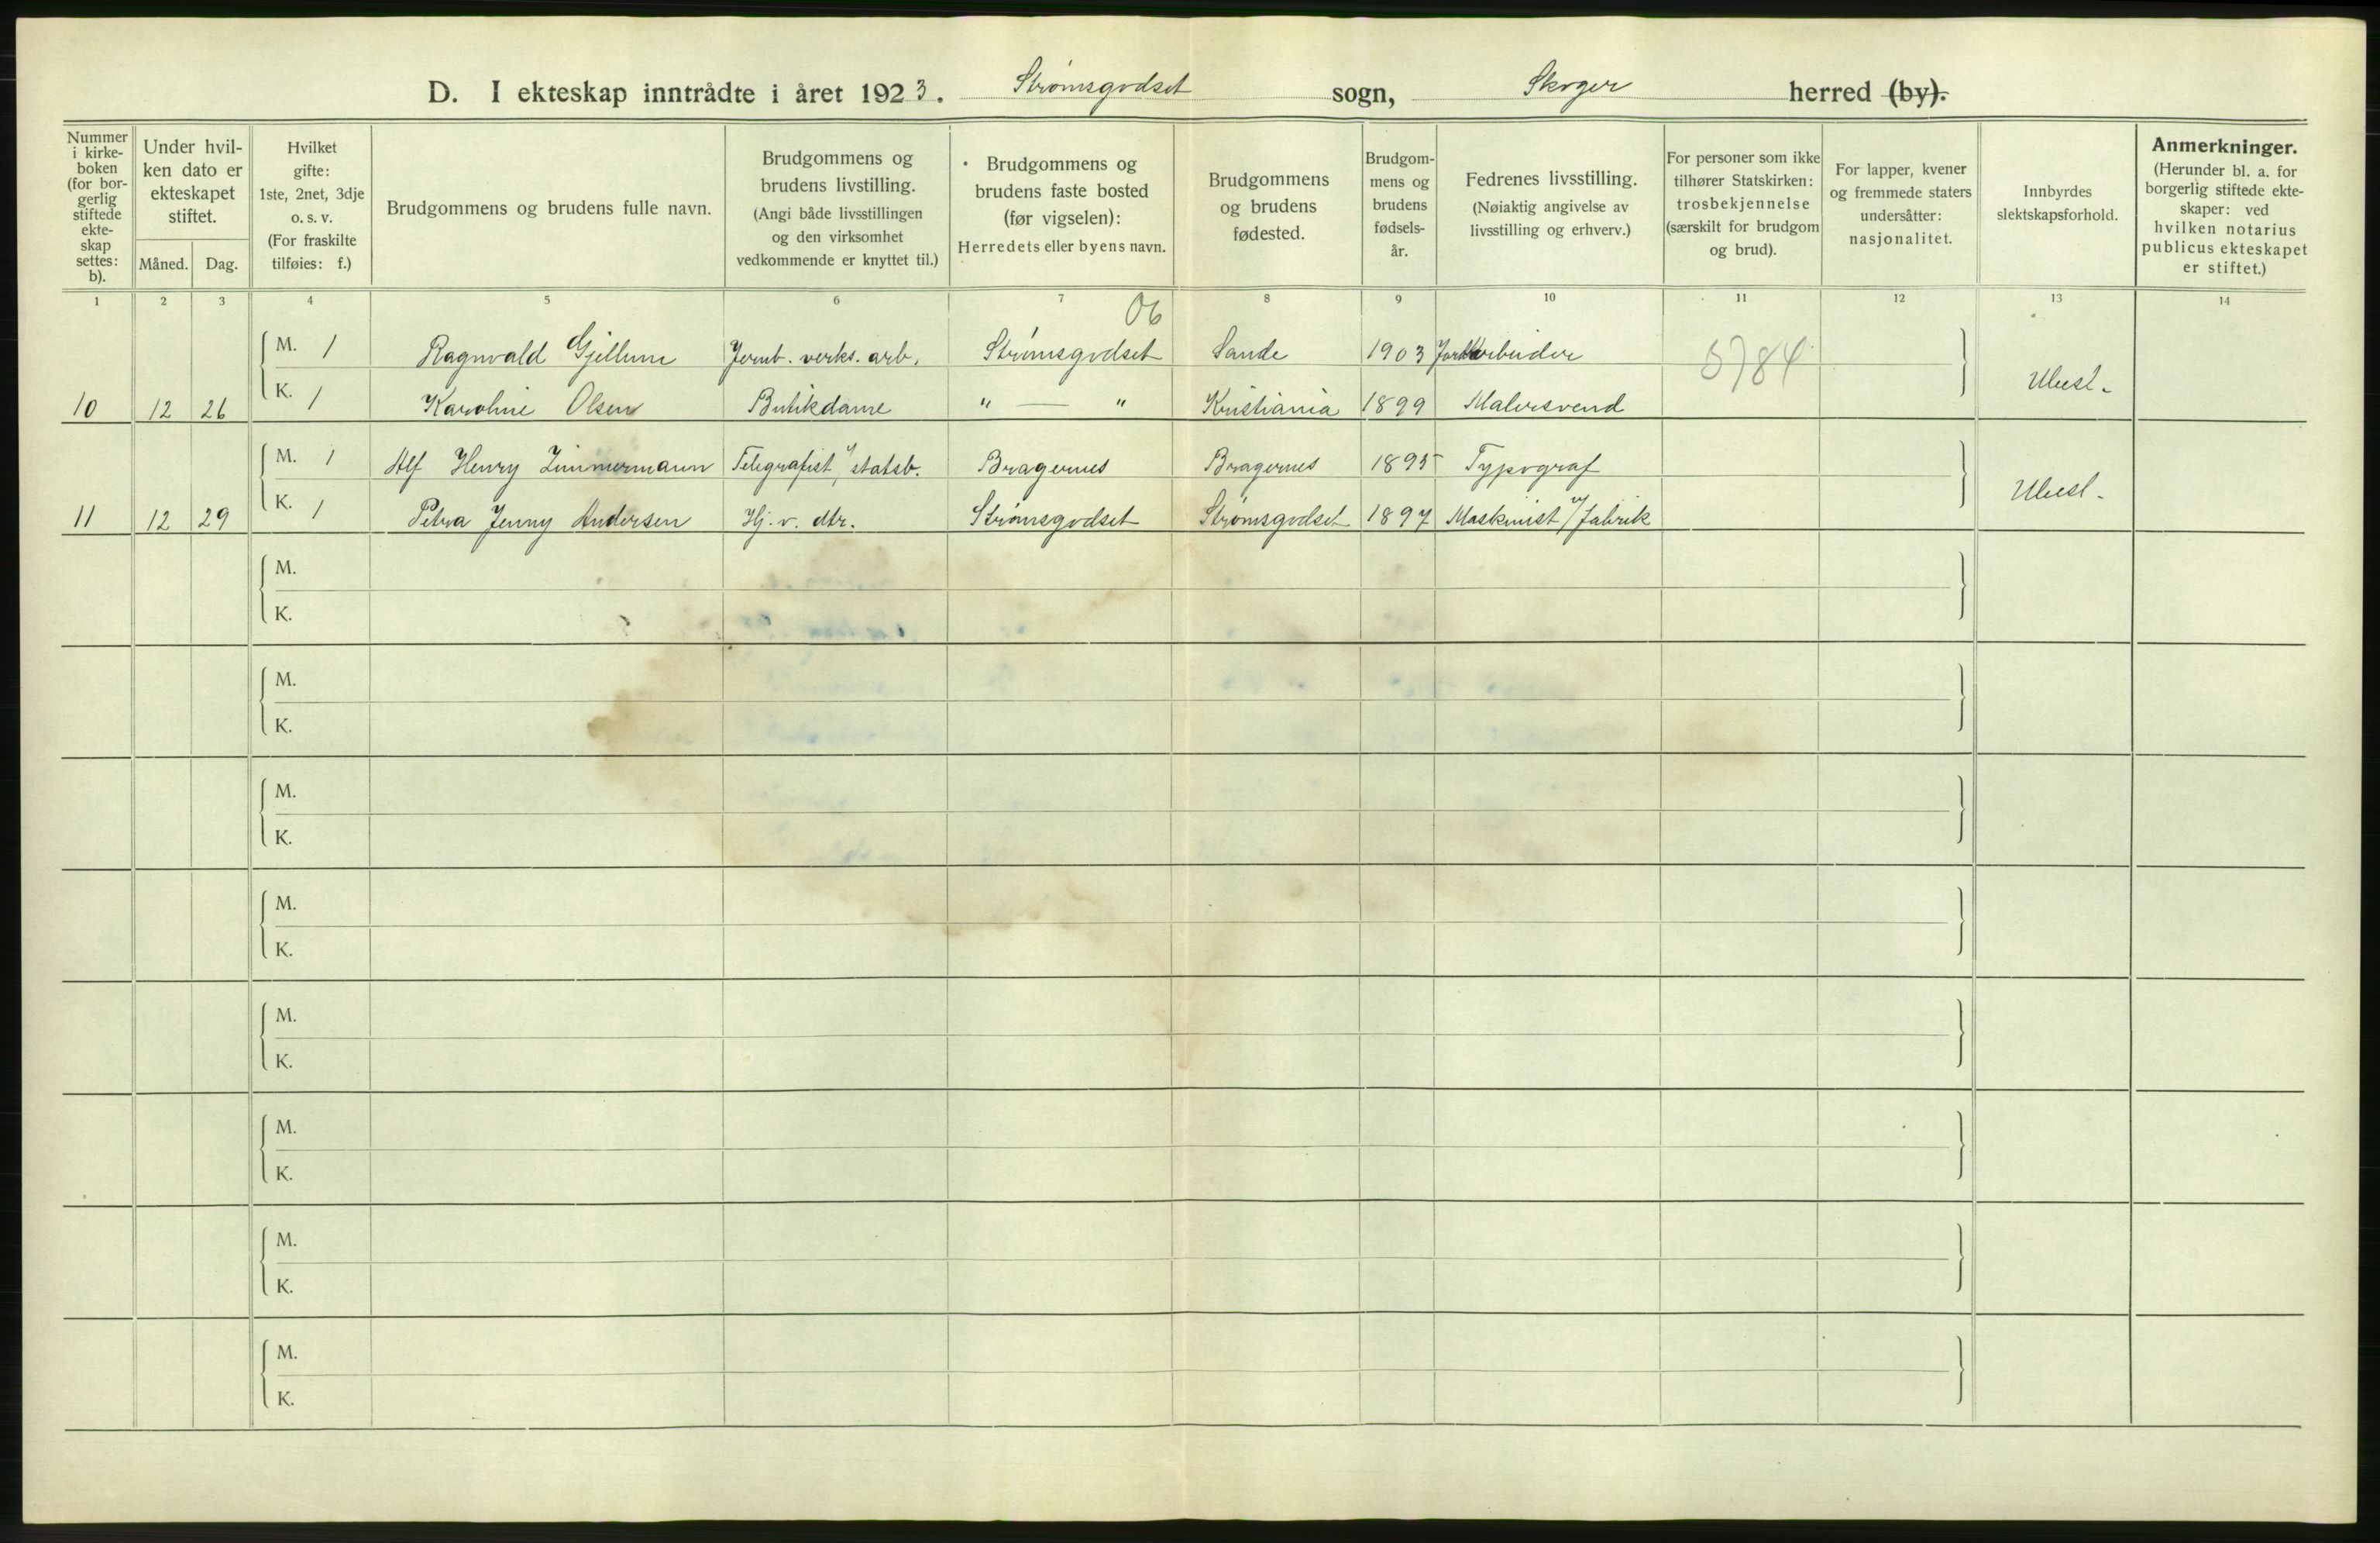 D. I ekteskap inntrådte i året 1923. Strømsgodset sogn, Skoger herred (by).
Nummer i kirke-boken (for bor-gerlig stiftede ekte-skap settes: b).
Under hvil-ken dato er ekteskapet stiftet.
Måned. Dag.
Hvilket gifte: 1ste, 2net, 3dje o. s. v. (For fraskilte tilføies: f.)
Brudgommens og brudens fulle navn.
Brudgommens og brudens livstilling. (Angi både livsstillingen og den virksomhet vedkommende er knyttet til.)
Brudgommens og brudens faste bosted (før vigselen): Herredets eller byens navn.
Brudgommens og brudens fødested.
Brudgom-mens og brudens fødsels-år.
Fedrenes livsstilling. (Nøiaktig angivelse av livsstilling og erhverv.)
For personer som ikke tilhører Statskirken: trosbekjennelse (særskilt for brudgom og brud).
For lapper, kvener og fremmede staters undersåtter: nasjonalitet.
Innbyrdes slektskapsforhold.
Anmerkninger. (Herunder bl. a. for borgerlig stiftede ekte-skaper: ved hvilken notarius publicus ekteskapet er stiftet.)
1 2 3 4 5 6 7 8 9 10 11 12 13 14
06
M. 1 Ragnvald Gjellum Jernb. verks. arb. Strømsgodset Sande 1903 5784
10 12 26 K. 1 Karoline Olsen Butikdame " — " Kristiania 1899 Malersvend Ubesl.
M. 1 Alf Henry Zimmermann Telegrafist v/ statsb. Bragernes Bragernes 1895 Typograf
11 12 29 K. 1 Petra Jenny Andersen Hj. v. dtr. Strømsgodset Strømsgodset 1897 Maskinist v/ Fabrik Ubesl.
M.
K.
M.
K.
M.
K.
M.
K.
M.
K.
M.
K.
M.
K.
M.
K.